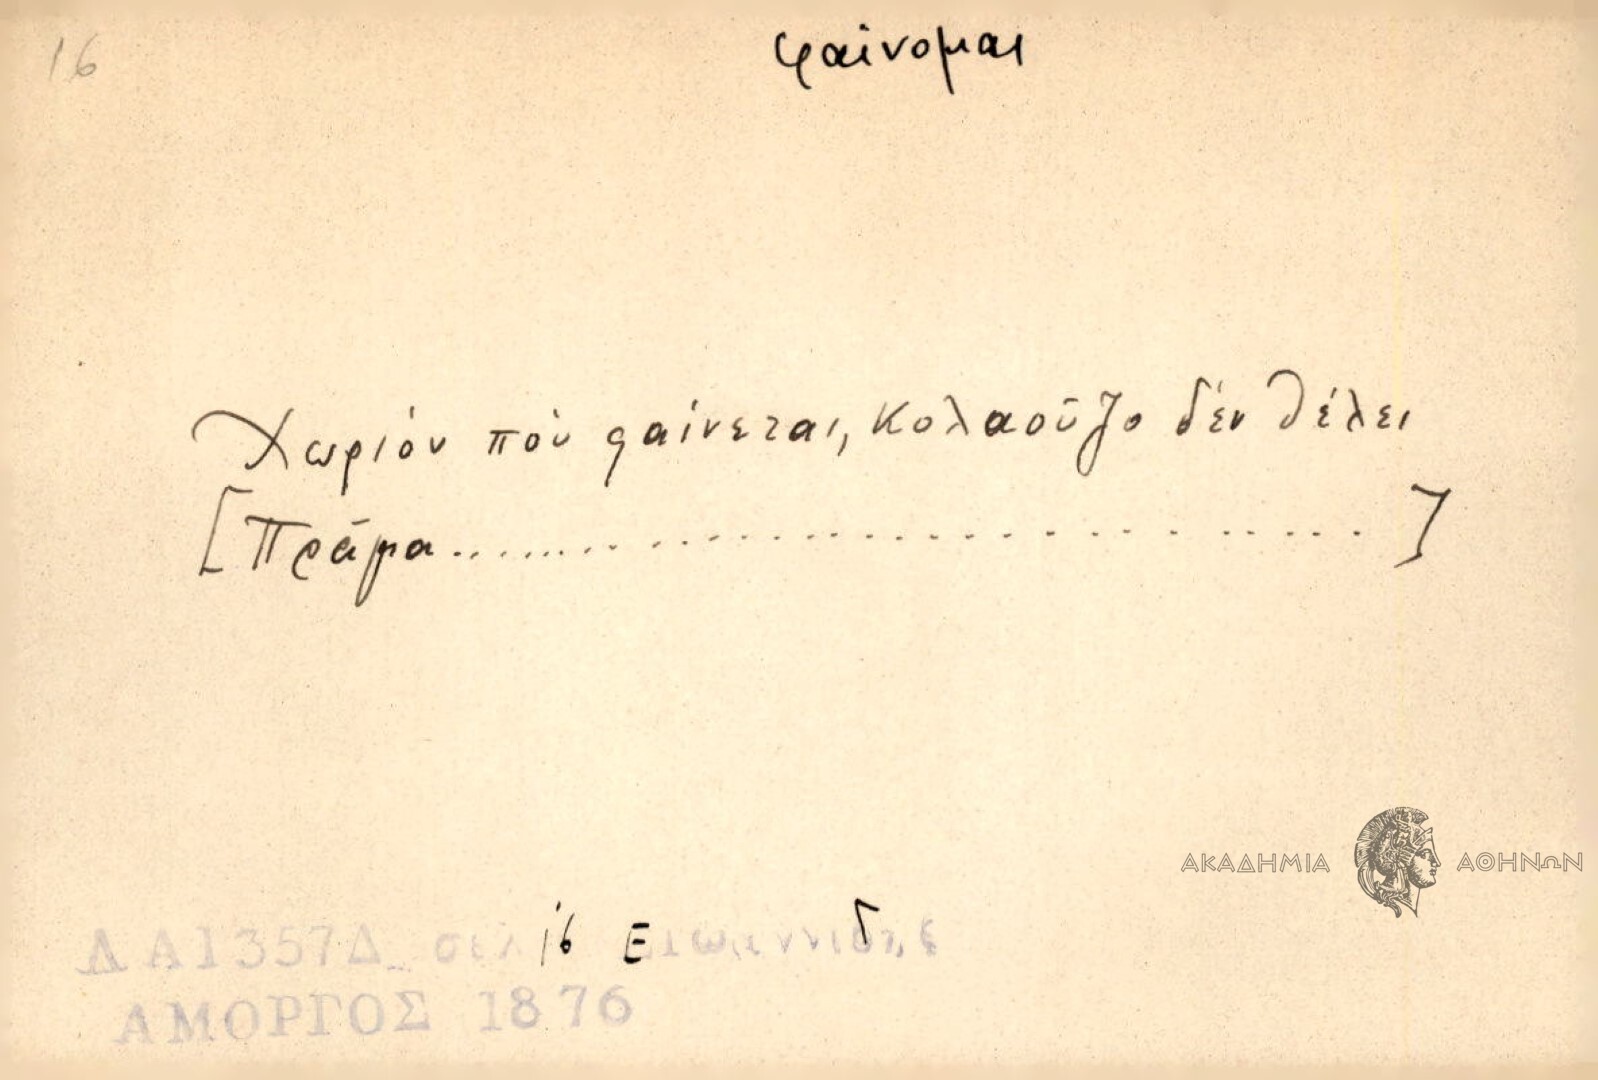 16
φαίνομαι
Χωριόν ποὺ φαίνεται, Κολαοῦζο δέν θέλει
[Πρᾶμα.......................................]
ΑΚΑΔΗΜΙΑ ΑΘΗΝΩΝ
ΛΑ1357Δ σελ 16 Ε Ιωαννίδης
ΑΜΟΡΓΟΣ 1876